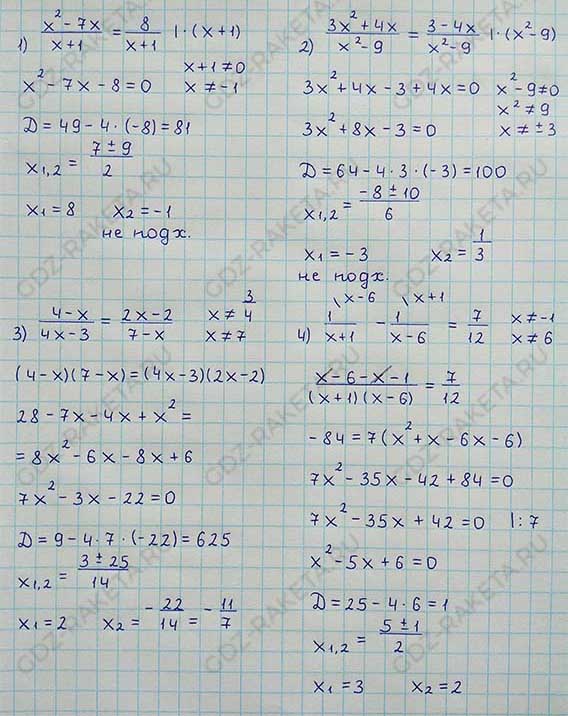 1) (x² - 7x)/(x+1) = 8/(x+1) | · (x+1)
x² - 7x - 8 = 0
x+1 ≠ 0
x ≠ -1
D = 49 - 4 · (-8) = 81
x₁,₂ = (7 ± 9)/2
x₁ = 8 x₂ = -1
не подх.
2) (3x² + 4x)/(x² - 9) = (3 - 4x)/(x² - 9) | · (x² - 9)
3x² + 4x - 3 + 4x = 0
x² - 9 ≠ 0
x² ≠ 9
3x² + 8x - 3 = 0
x ≠ ± 3
D = 64 - 4 · 3 · (-3) = 100
x₁,₂ = (-8 ± 10)/6
x₁ = -3 x₂ = 1/3
не подх.
3) (4 - x)/(4x - 3) = (2x - 2)/(7 - x)
x ≠ 3/4
x ≠ 7
(4 - x)(7 - x) = (4x - 3)(2x - 2)
28 - 7x - 4x + x² =
= 8x² - 6x - 8x + 6
7x² - 3x - 22 = 0
D = 9 - 4 · 7 · (-22) = 625
x₁,₂ = (3 ± 25)/14
x₁ = 2 x₂ = -22/14 = -11/7
\x-6 \x+1
4) 1/(x+1) - 1/(x-6) = 7/12
x ≠ -1
x ≠ 6
(x - 6 - x - 1)/((x+1)(x-6)) = 7/12
-84 = 7(x² + x - 6x - 6)
7x² - 35x - 42 + 84 = 0
7x² - 35x + 42 = 0 | : 7
x² - 5x + 6 = 0
D = 25 - 4 · 6 = 1
x₁,₂ = (5 ± 1)/2
x₁ = 3 x₂ = 2
GDZ-RAKETA.RU